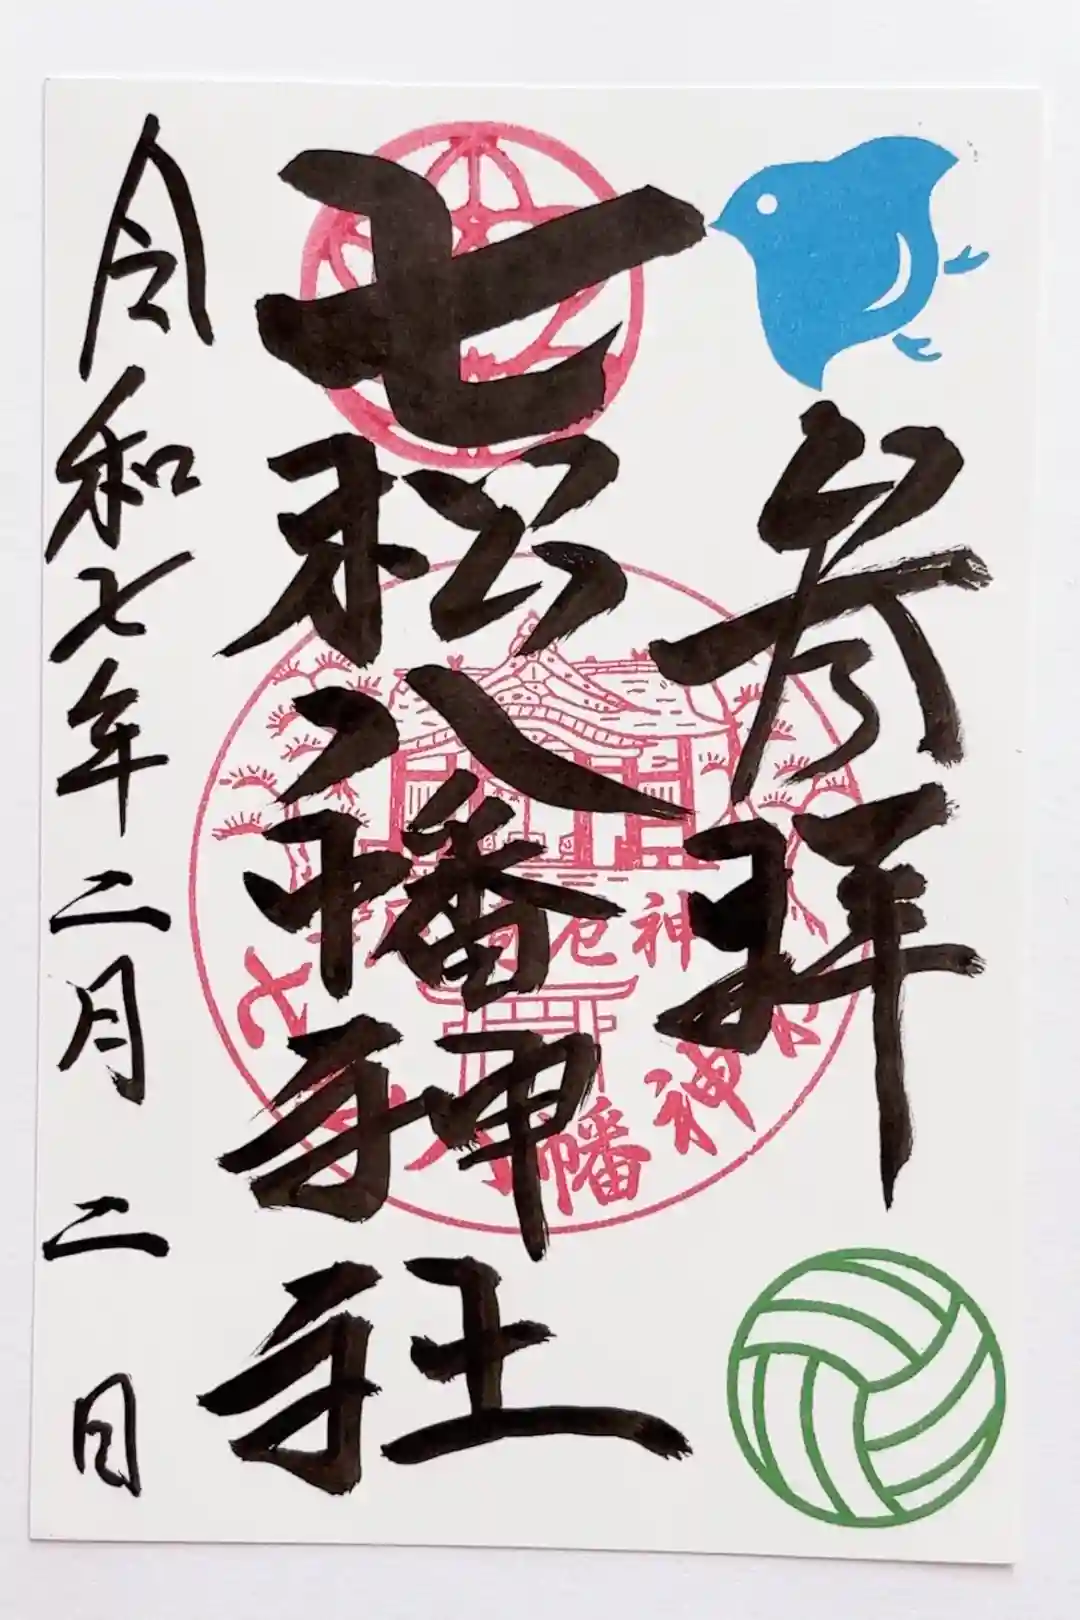 参拝
七松八幡神社
令和七年二月二日
厄神
七
八幡神